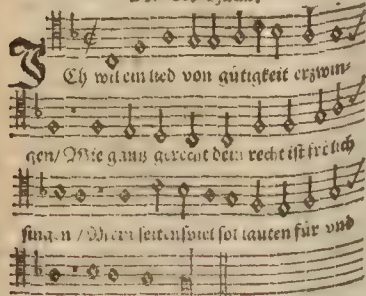 ICh wil ein lied von gütigkeit erzwin⸗
gen/ Wie gantz gerecht dein recht ist frölich
singen / Mein seitenspiel sol lauten für vnd